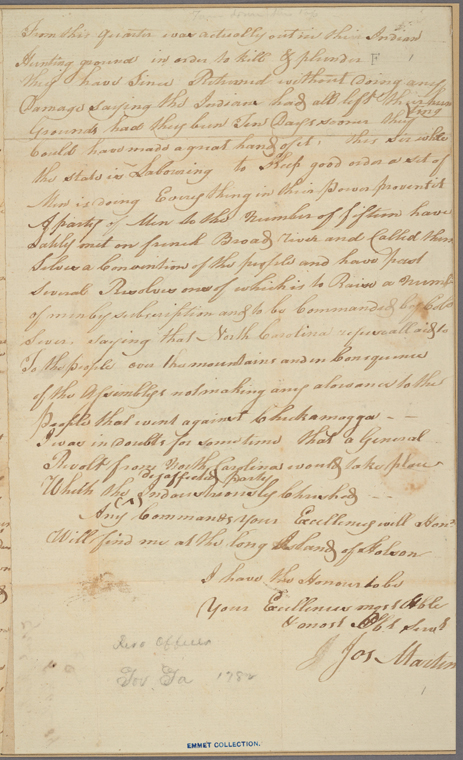 From this quarter was actually out in their Indian
Hunting ground in order to kill & plunder
they have Since Returned without Doing any
Damage Saying the Indians had all left their hun
ting
Grounds had they been Ten Days sooner they
Could have made a great hand of it. this Sir while
the State is Labouring to Keep good order a set of
Men is doing Every thing in their power prevent it
A party of Men to the Number of fifteen have
Lately met on french Broad River and Called them
Selves a Convention of the people and have past
Several Resolves one of which is to Raise a Numbr
of men by subscription and to be Commanded by Colo
Sever. saying that North Carolina refuse all aid to
To the people over the mountains and in Consequence
of the Assemblys not making any alowance to the
people that went against Chickamogga - -
I was in doubts for some time that a General
Revolt from North Carolina would take place
disaffected party
Which the Indians
Any Commands Your Excellency will Honr
Will find me at the long Island of Holson
I have the Honour to be
Your Excellencies most Oble
& most Obt Servt
Jos Martin
Rev Officer
Gov. Ga 1782
EMMET COLLECTION.